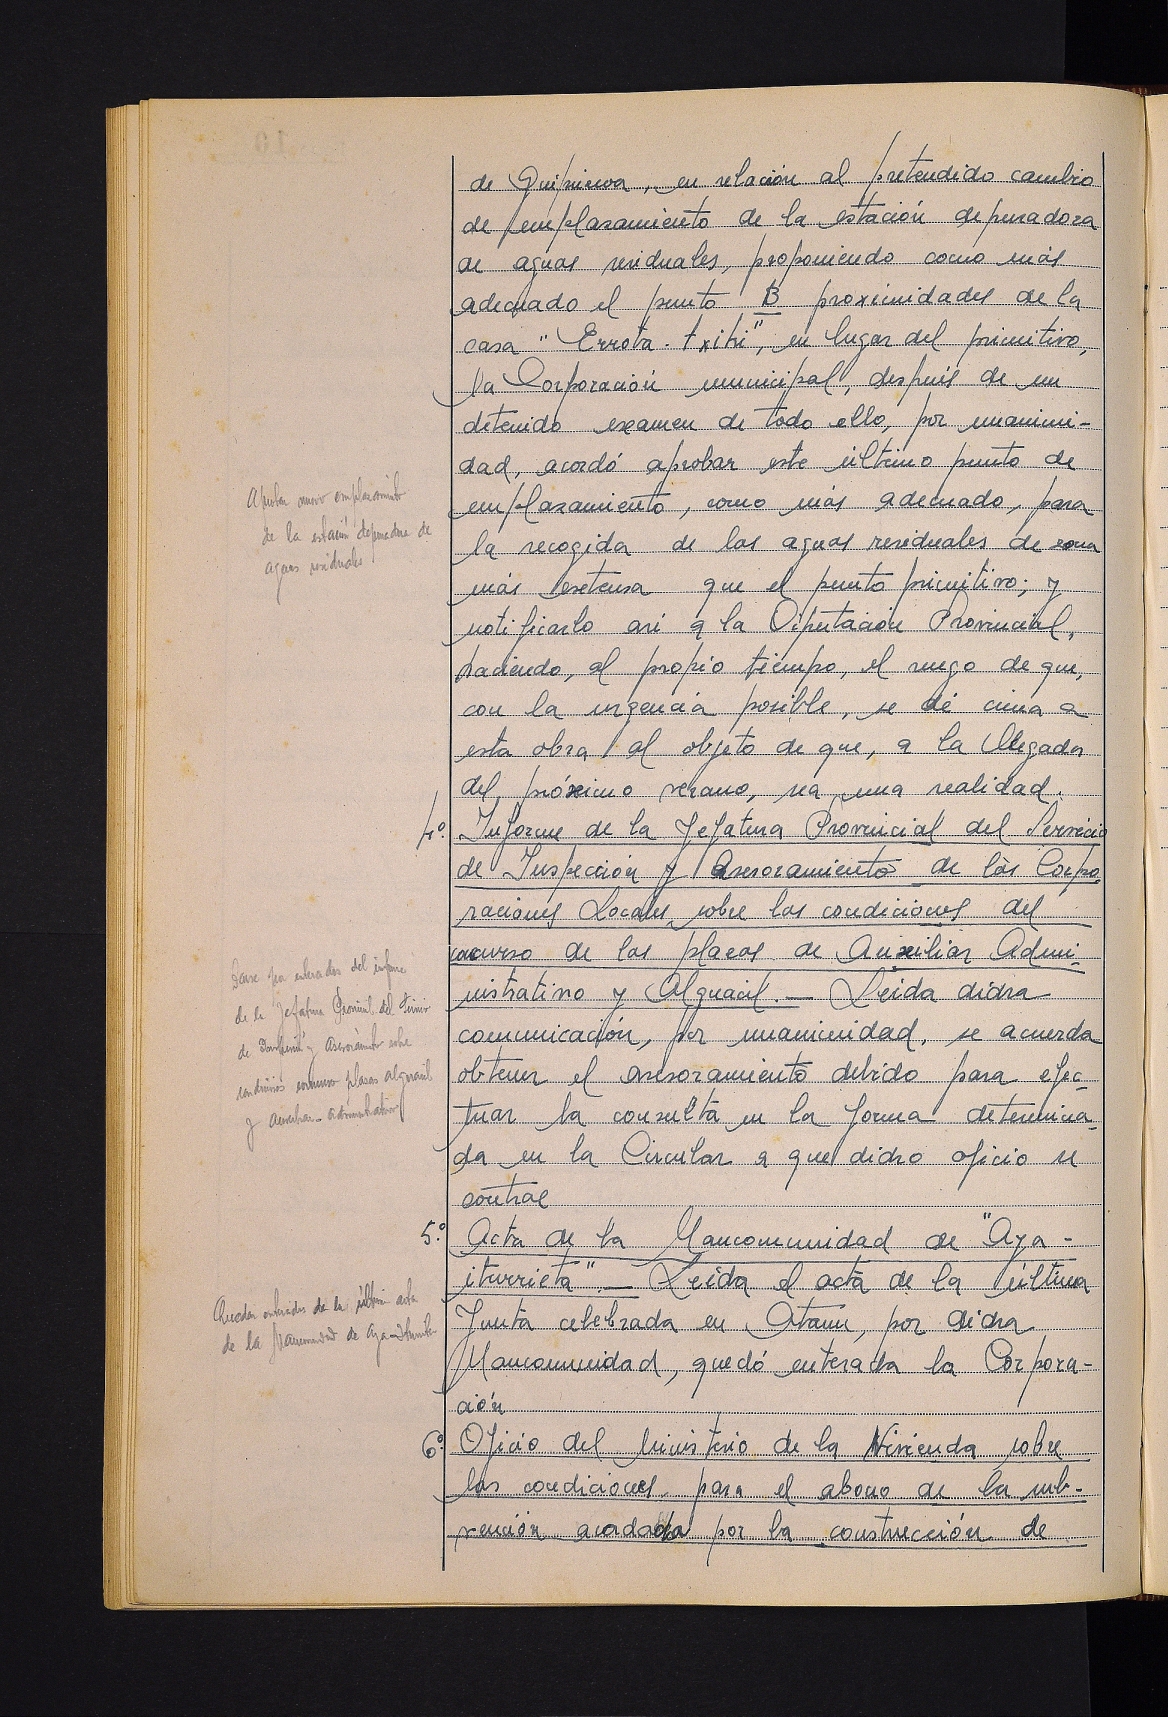 de Guipuzcoa, en relación al pretendido cambio
de emplazamiento de la estación depuradora
de aguas residuales, proponiendo como más
adecuado el punto B proximidades de la
casa "Errota-txiki", en lugar del primitivo,
la Corporación municipal, después de un
detenido examen de todo ello, por unanimi-
dad, acordó aprobar este último punto de
emplazamiento, como más adecuado, para
la recogida de las aguas residuales de zona
más extensa que el punto primitivo; y
notificarlo así a la Diputación Provincial,
haciendo, al propio tiempo, el ruego de que,
con la urgencia posible, se dé cima a
esta obra al objeto de que, a la llegada
del próximo verano, sea una realidad.
4º. Informe de la Jefatura Provincial del Servicio
de Inspección y Asesoramiento de las Corpo-
raciones Locales, sobre las condiciones del
concurso de las plazas de Auxiliar Admi-
nistrativo y Alguacil. — Leida dicha
comunicación, por unanimidad, se acuerda
obtener el asesoramiento debido para efec-
tuar la consulta en la forma determina-
da en la Circular a que dicho oficio se
contrae
5º. Acta de la Mancomunidad de "Aya-
iturrieta". — Leida el acta de la última
Junta celebrada en Ataun, por dicha
Mancomunidad, quedó enterada la Corpora-
ción
6º. Oficio del Ministerio de la Vivienda sobre
las condiciones para el abono de la sub-
vención acordada por la construcción de
Aprobar nuevo emplazamiento
de la estación depuradora de
aguas residuales
Darse por enterados del informe
de la Jefatura Provincial del Servicio
de Inspección y Asesoramiento sobre
condiciones concurso plazas alguacil
y auxiliar administrativo
Quedar enterados de la última acta
de la Mancomunidad de Aya-Iturrieta